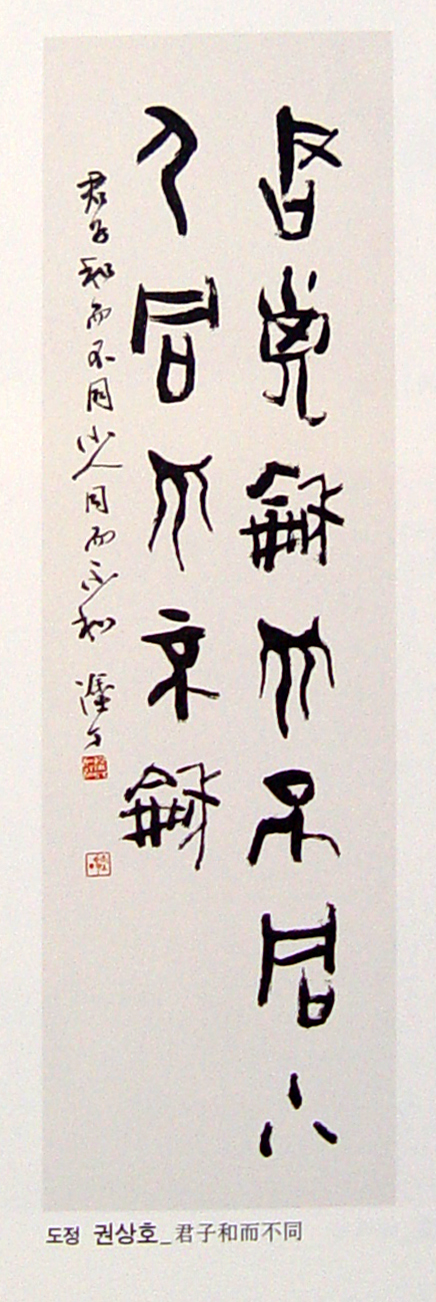 君子龢而不同小
人同而不龢
君子和而不同小人同而不和
도정 권상호_君子和而不同